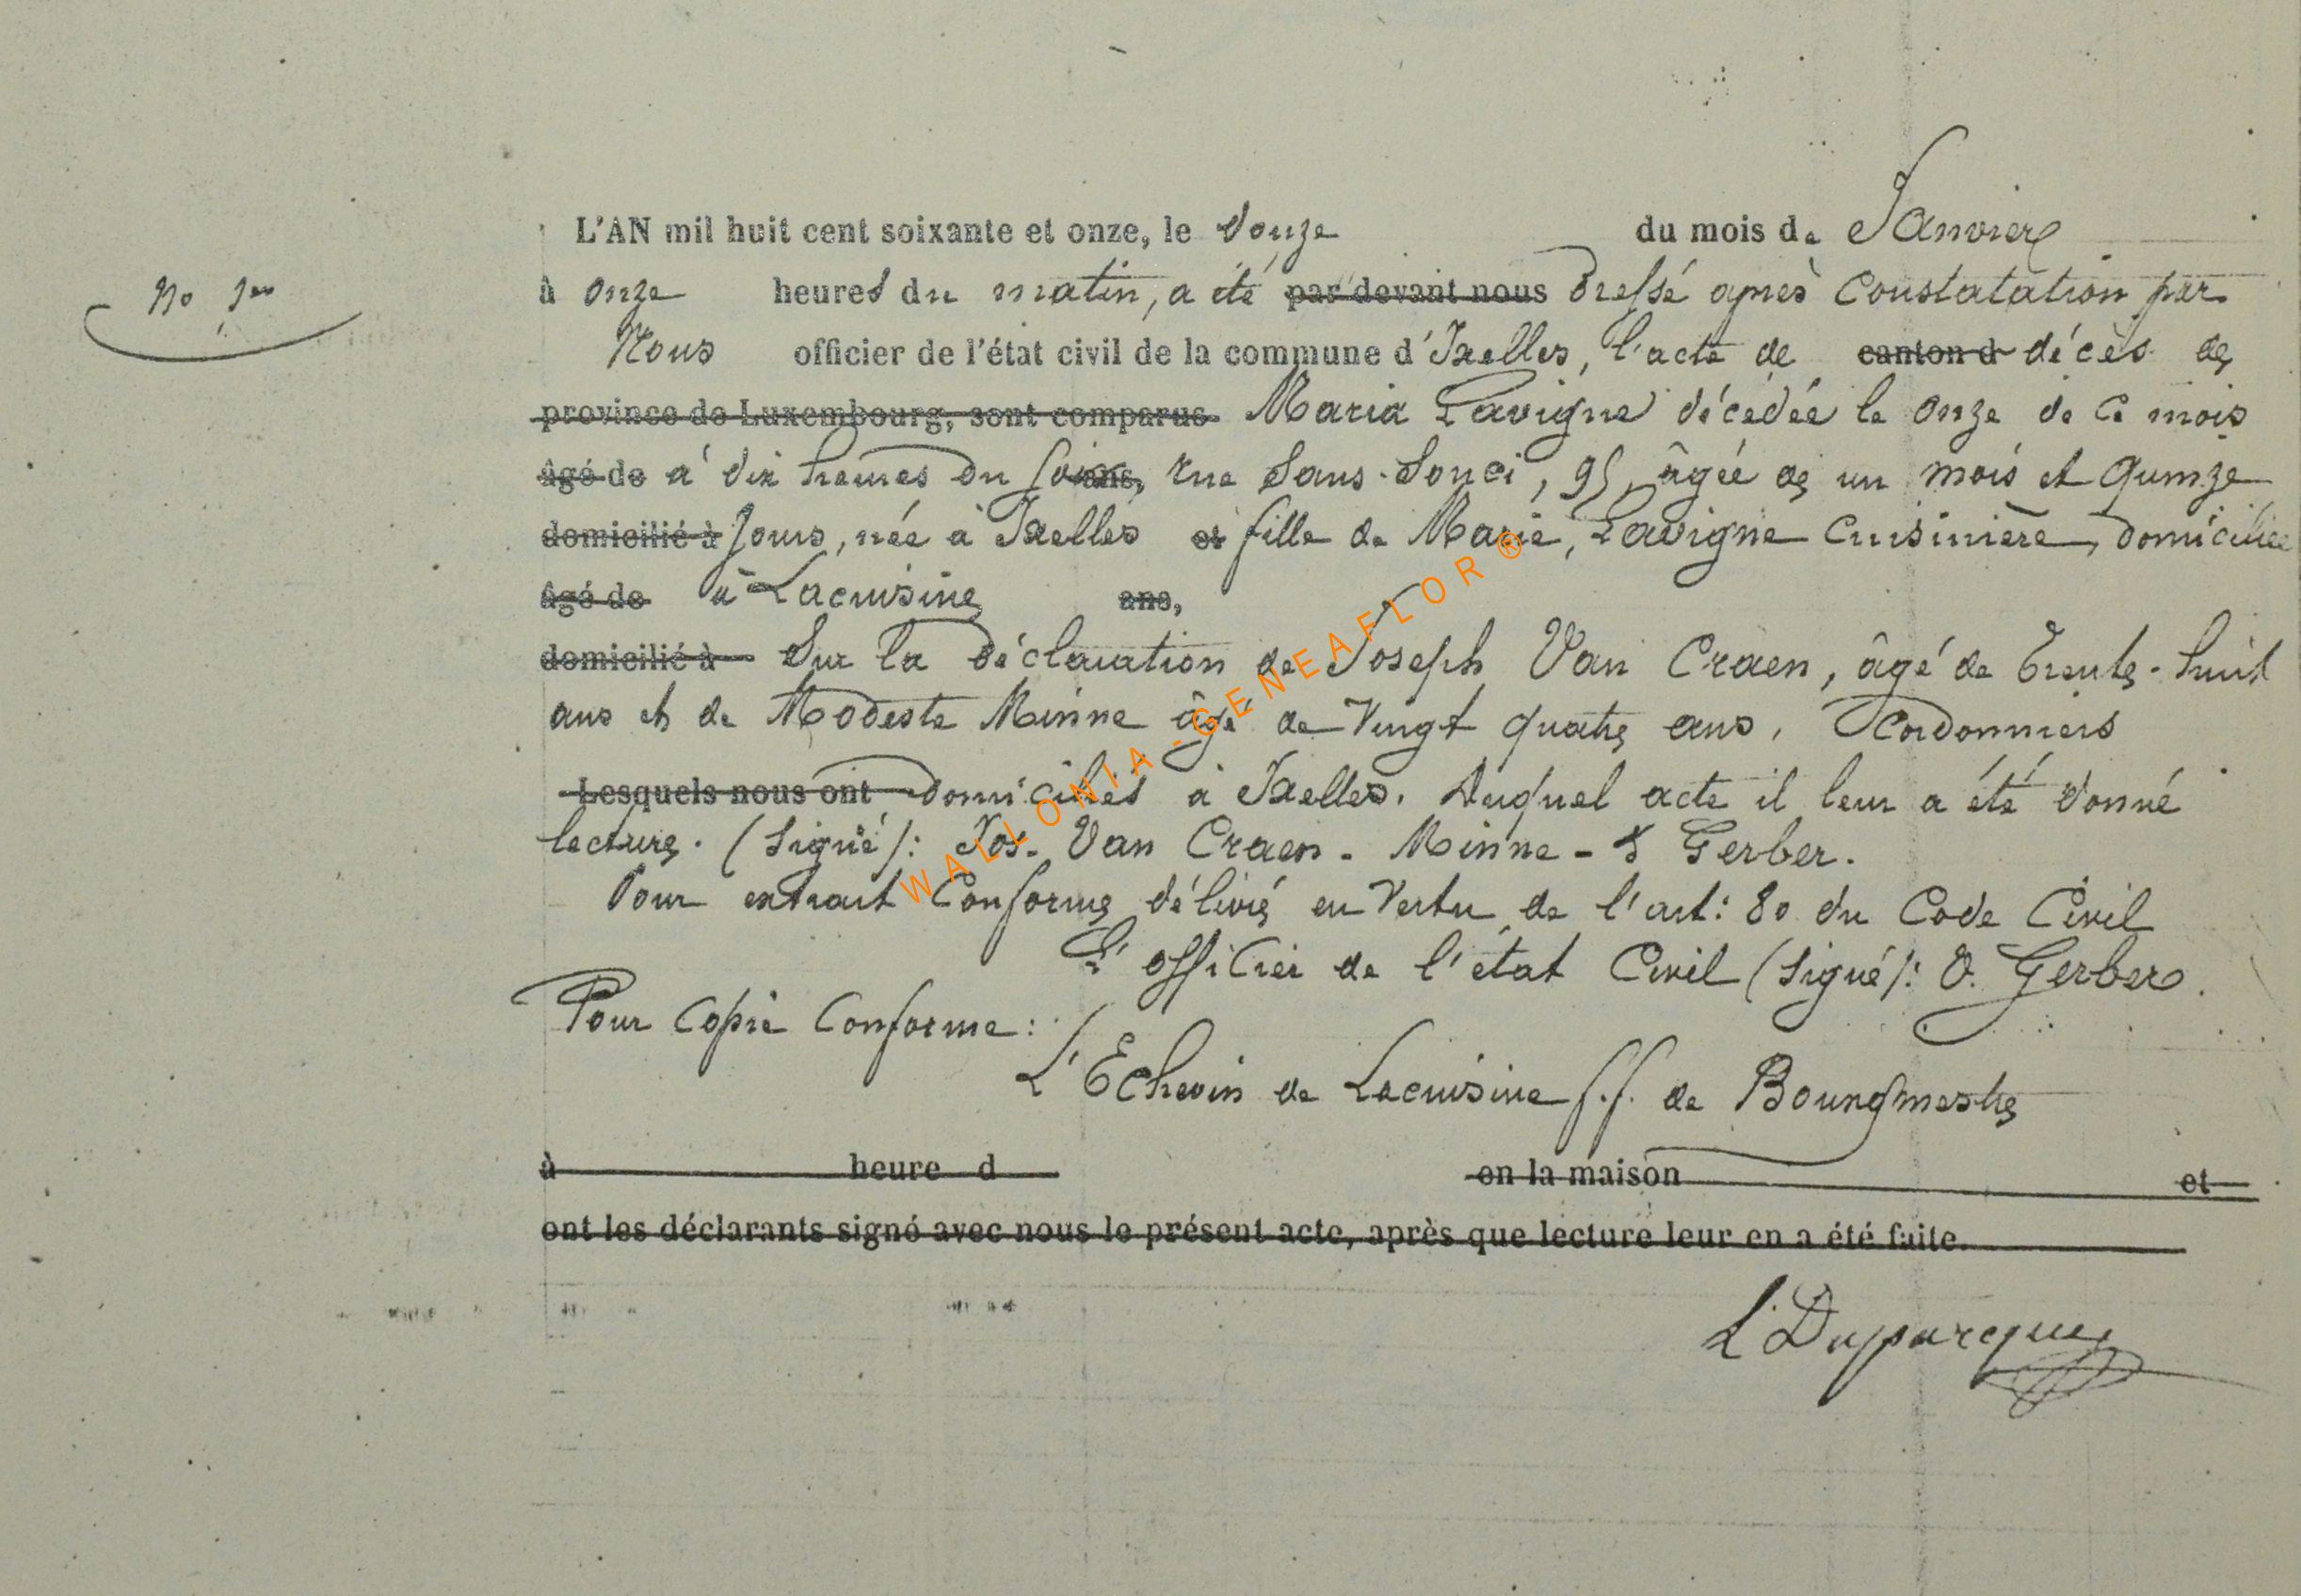 L'AN mil huit cent soixante et onze, le douze du mois de Janvier
No 1er
à onze heures du matin, a été par devant nous dressé après constatation par
Nous officier de l'état civil de la commune d'Ixelles, l'acte de canton d décès de
province de Luxembourg, sont comparus Maria Lavigne décédée le onze de ce mois
âgé de à dix heures du soir ans, rue Sans-Souci, 95, âgée de un mois et quinze
domicilié à jours, née à Ixelles et fille de Marie, Lavigne cuisinière, domiciliée
âgé de à Lacuisine ans,
domicilié à Sur la déclaration de Joseph Van Craen, âgé de trente-huit
ans et de Modeste Minne âgé de vingt quatre ans, Cordonniers
Lesquels nous ont domiciliés à Ixelles. Duquel acte il leur a été donné
lecture. (Signé): Jos. Van Craen. Minne - Gerber.
Pour extrait conforme délivré en vertu de l'art: 80 du Code Civil
L'officier de l'état Civil (signé): O. Gerber.
Pour copie conforme:
L'Echevin de Lacuisine f.f. de Bourgmestre
à heure d en la maison et
ont les déclarants signé avec nous le présent acte, après que lecture leur en a été faite.
L Duparcque
WALLONIA-GENEAFLOR®